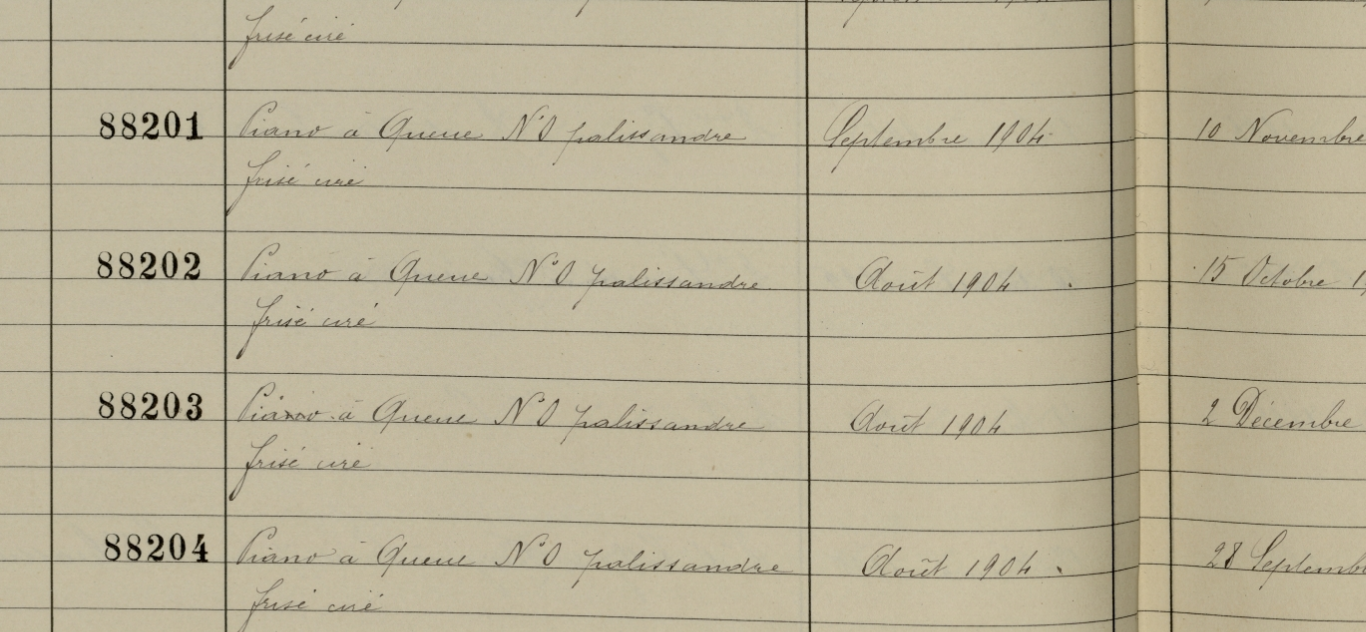 frisé ciré
88201 Piano à Queue N°0 palissandre Septembre 1904 10 Novembre
frisé ciré
88202 Piano à Queue N°0 palissandre Août 1904 15 Octobre 1
frisé ciré
88203 Piano à Queue N°0 palissandre Août 1904 2 Décembre
frisé ciré
88204 Piano à Queue N°0 palissandre Août 1904 28 Septemb
frisé ciré